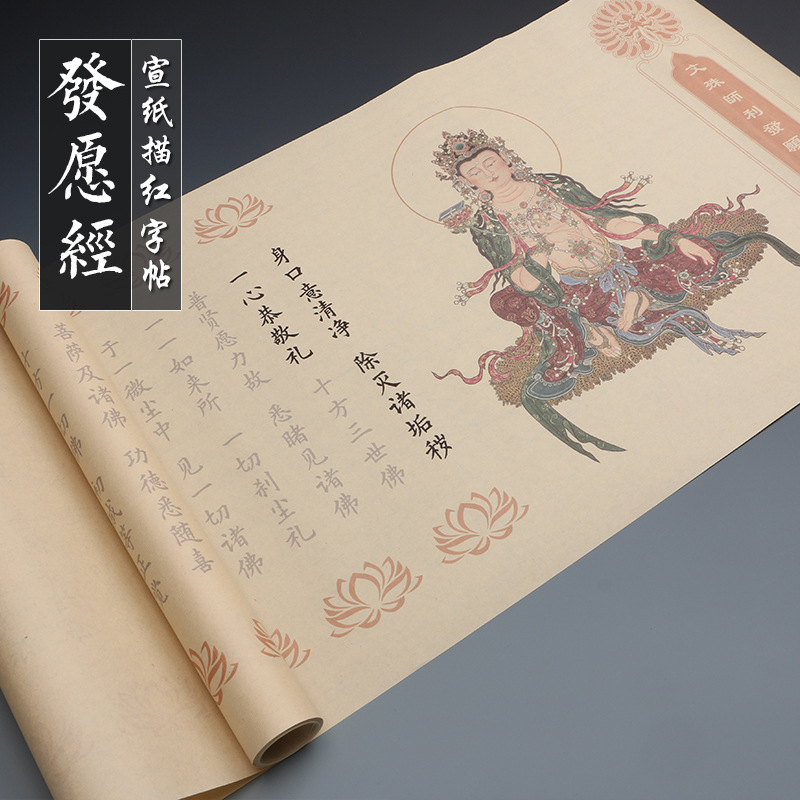 發愿經
宣纸描红字帖
文殊師利發願
身口意清净 除灭诸垢秽
一心恭敬礼 十方三世佛
普贤愿力故 悉睹见诸佛
一一如来所 一切刹尘礼
于一微尘中 见一切诸佛
菩萨及诸佛 功德悉随喜
十方一切佛 初成等正觉